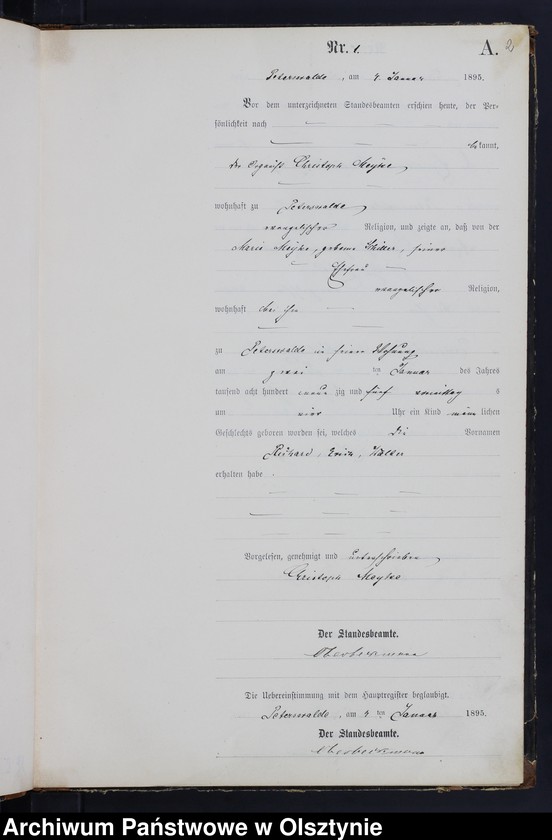 Nr. 1.
A. 2
Peterswalde, am 4. Januar 1895.
Vor dem unterzeichneten Standesbeamten erschien heute, der Per-
sönlichkeit nach
bekannt,
der Organist Christoph
wohnhaft zu Peterswalde
evangelischer Religion, und zeigte an, daß von der
Marie, geborene, seiner
Ehefrau
evangelischer Religion,
wohnhaft bei ihm
zu Peterswalde in seiner Wohnung
am zwei ten Januar des Jahres
tausend acht hundert neun zig und fünf vormittag s
um vier Uhr ein Kind männlichen
Geschlechts geboren worden sei, welches die Vornamen
Erich, Walter
erhalten habe.
Vorgelesen, genehmigt und unterschrieben
Christoph
Der Standesbeamte.
Die Uebereinstimmung mit dem Hauptregister beglaubigt.
Peterswalde, am 4 ten Januar 1895.
Der Standesbeamte.
Archiwum Państwowe w Olsztynie